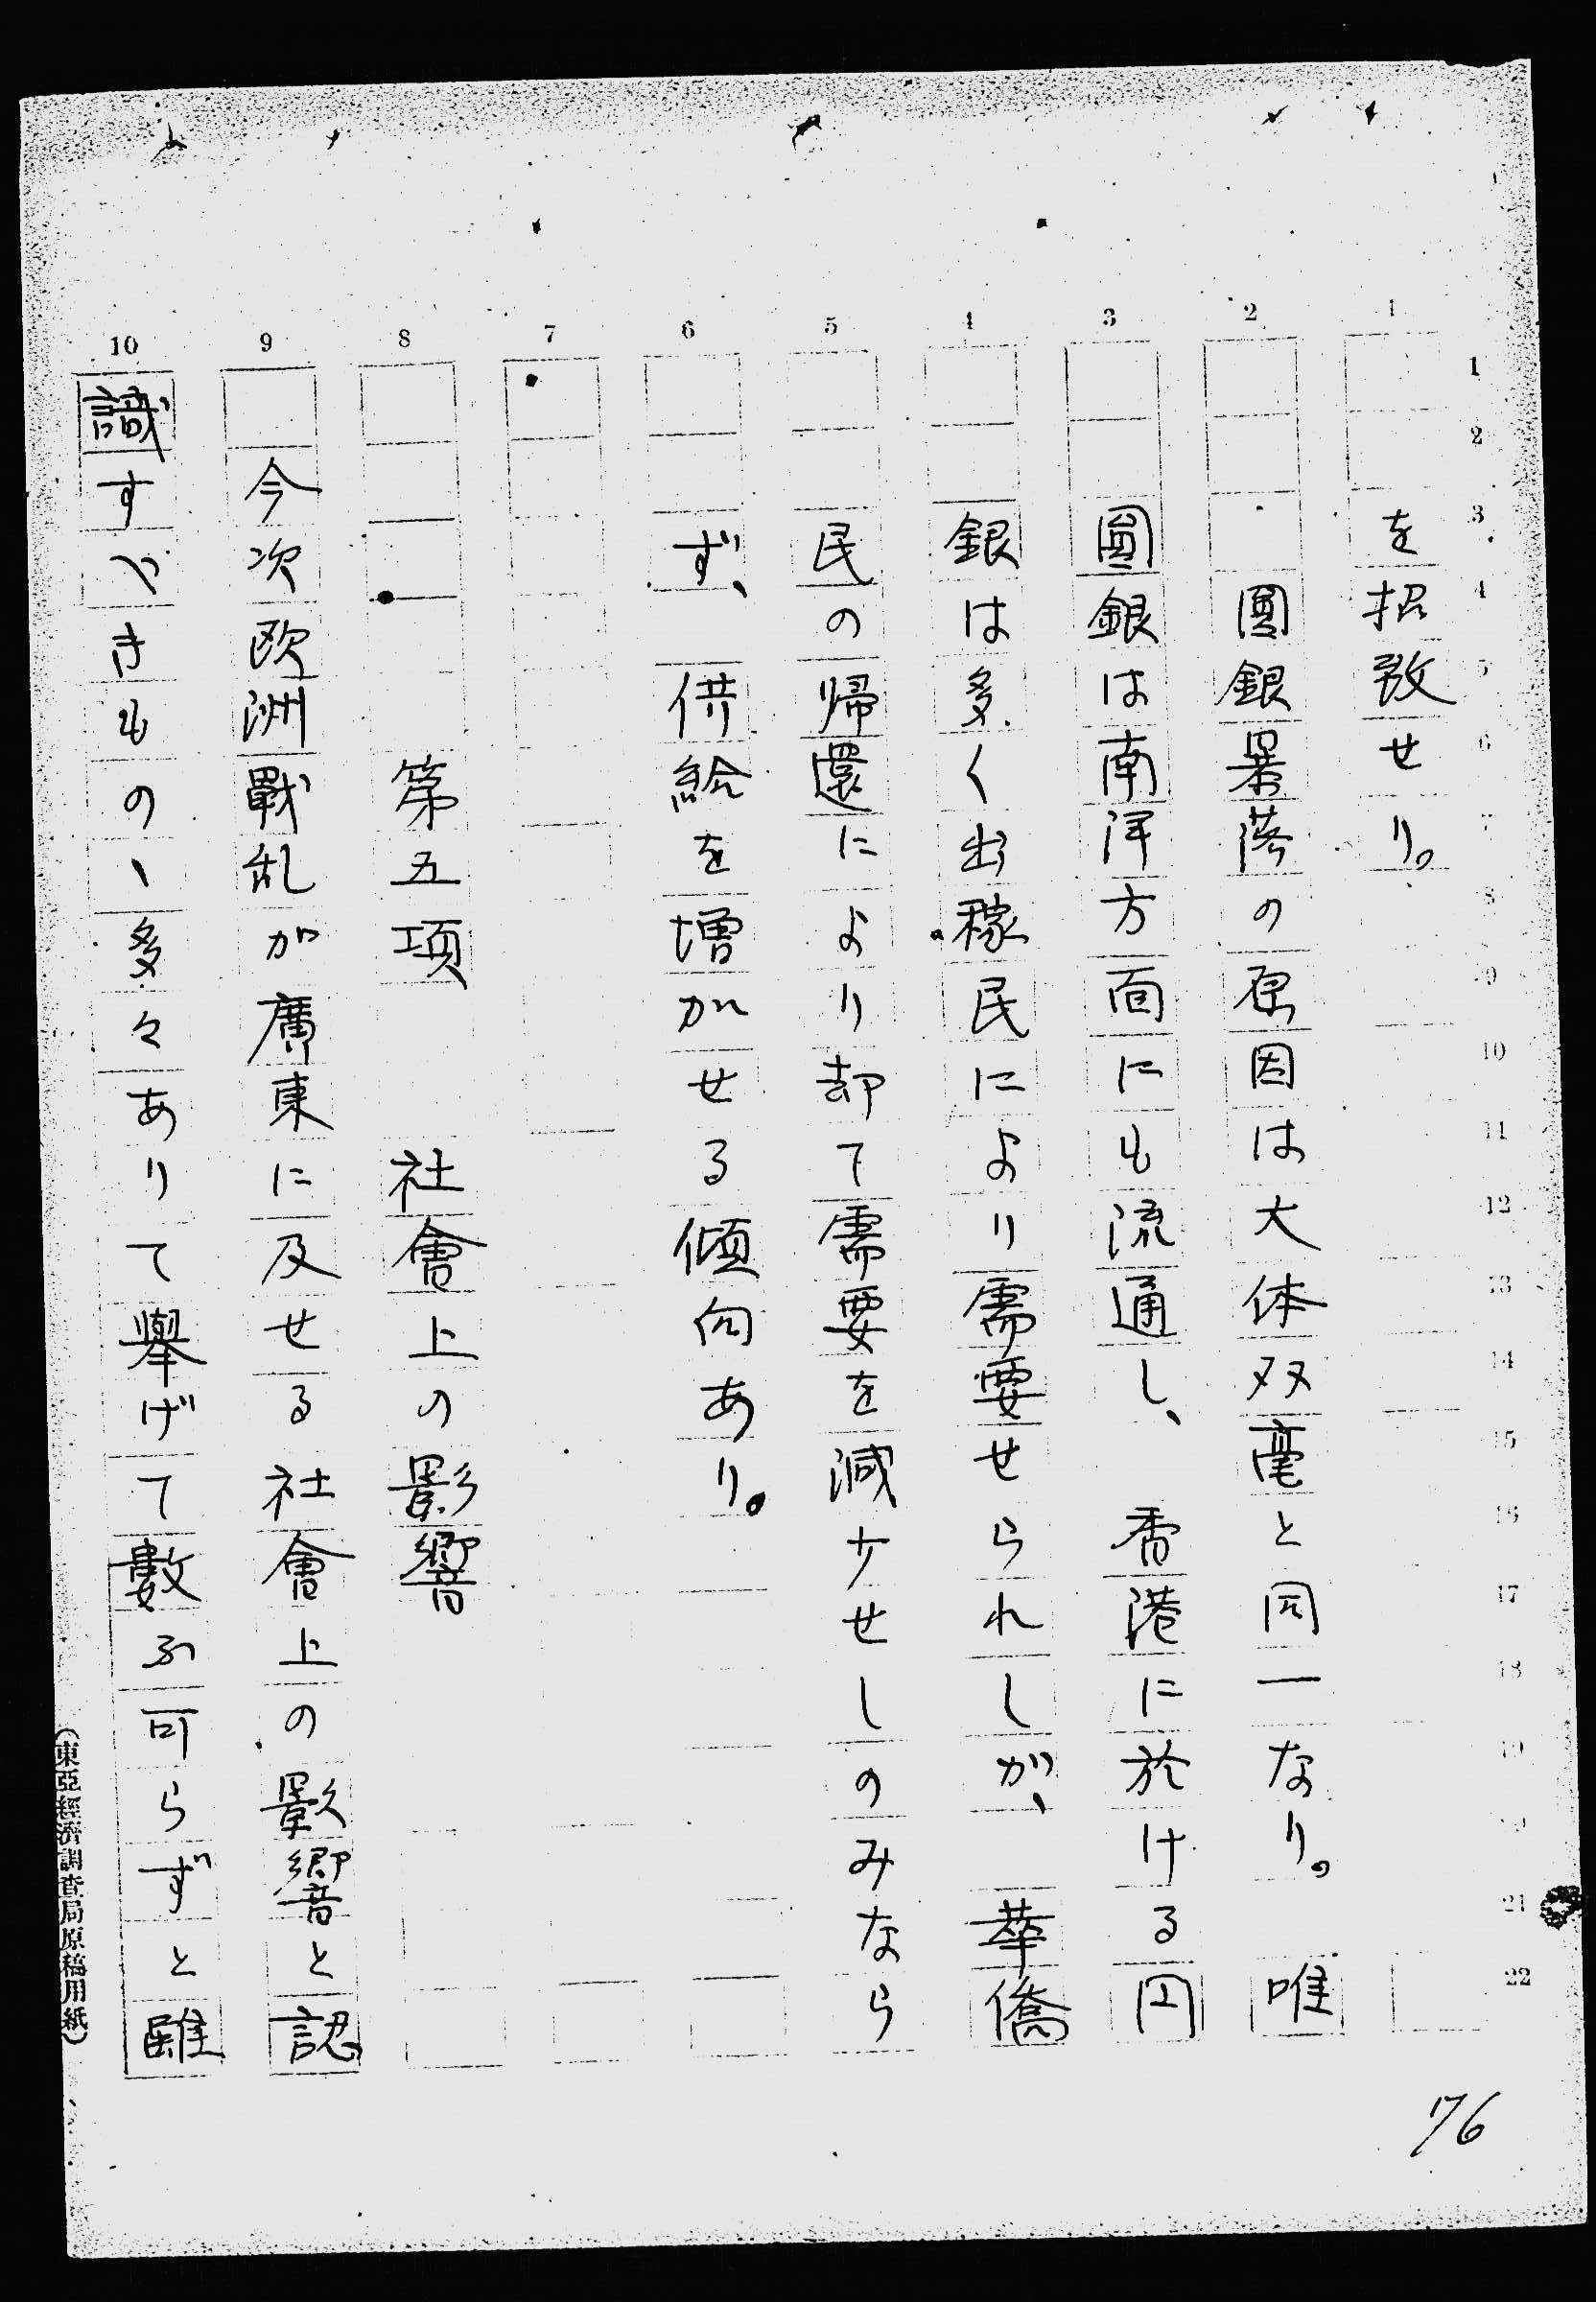 を招致せり。
圓銀暴落の原因は大体双毫と同一なり。唯
圓銀は南洋方面にも流通し、香港に於ける円
銀は多く出稼民により需要せられしが、華僑
民の帰還により却て需要を減少せしのみなら
ず、供給を増加せる傾向あり。
第五項 社會上の影響
今次欧洲戰乱が廣東に及せる社會上の影響と認
識すべきものゝ多々ありて擧げて數ふ可らずと雖
(東亞經濟調査局原稿用紙)
1 2 3 4 5 6 7 8 9 10
1 2 3 4 5 6 7 8 9 10 11 12 13 14 15 16 17 18 19 20 21 22
76